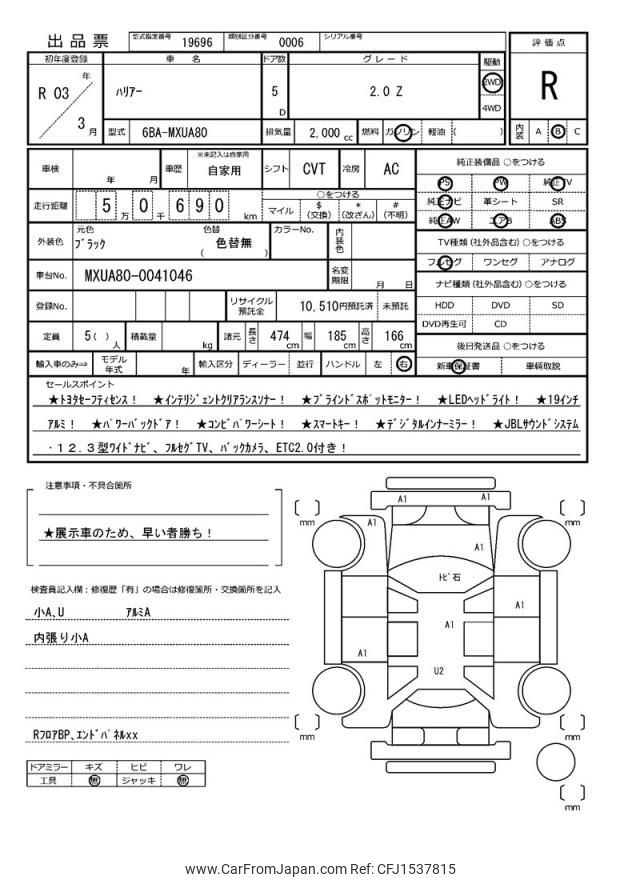 出品票 型式指定番号 19696 類別区分番号 0006 シリアル番号
評価点
R
内装 A B C
初年度登録 車名 ドア数 グレード 駆動
R 03 年 3 月
ﾊﾘｱｰ 5 D 2.0 Z 2WD 4WD
型式 6BA-MXUA80 排気量 2,000 cc 燃料 ガソリン 軽油 ( )
車検 年 月 車歴 ※未記入は自家用 自家用 シフト CVT 冷房 AC
純正装備品 ○をつける
PS PW 純正TV
純正ナビ 革シート SR
純正AW エアB ABS
走行距離 5 万 0 千 6 9 0 km
○をつける
マイル $ (交換) * (改ざん) # (不明)
外装色 元色 ﾌﾞﾗｯｸ 色替 色替無 ( ) カラーNo. 内装色
TV種類 (社外品含む) ○をつける
フルセグ ワンセグ アナログ
車台No. MXUA80-0041046 名変期限 月 日
ナビ種類 (社外品含む) ○をつける
HDD DVD SD
DVD再生可 CD
登録No. リサイクル預託金 10,510円預託済 未預託
定員 5( ) 人 積載量 kg 諸元 長さ 474 cm 幅 185 cm 高さ 166 cm
後日発送品 ○をつける
新車保証書 車輌取説
輸入車のみ⇒ モデル年式 年 輸入区分 ディーラー 並行 ハンドル 左 右
セールスポイント
★ﾄﾖﾀｾｰﾌﾃｨｾﾝｽ！ ★ｲﾝﾃﾘｼﾞｪﾝﾄｸﾘｱﾗﾝｽｿﾅｰ！ ★ﾌﾞﾗｲﾝﾄﾞｽﾎﾟｯﾄﾓﾆﾀｰ！ ★LEDﾍｯﾄﾞﾗｲﾄ！ ★19ｲﾝﾁ
ｱﾙﾐ！ ★ﾊﾟﾜｰﾊﾞｯｸﾄﾞｱ！ ★ｺﾝﾋﾞﾊﾟﾜｰｼｰﾄ！ ★ｽﾏｰﾄｷｰ！ ★ﾃﾞｼﾞﾀﾙｲﾝﾅｰﾐﾗｰ！ ★JBLｻｳﾝﾄﾞｼｽﾃﾑ
・１２.３型ﾜｲﾄﾞﾅﾋﾞ、ﾌﾙｾｸﾞTV、ﾊﾞｯｸｶﾒﾗ、ETC2.0付き！
注意事項・不具合箇所
★展示車のため、早い者勝ち！
検査員記入欄：修復歴「有」の場合は修復箇所・交換箇所を記入
小A、U ｱﾙﾐA
内張り小A
RﾌﾛｱBP、ｴﾝﾄﾞﾊﾟﾈﾙxx
ドアミラー キズ ヒビ ワレ
工具 無 ジャッキ 無
A1 A1
mm mm
A1
A1
ﾄﾋﾞ石
A1
A1
A1
U2
mm mm
mm
www.CarFromJapan.com Ref: CFJ1537815